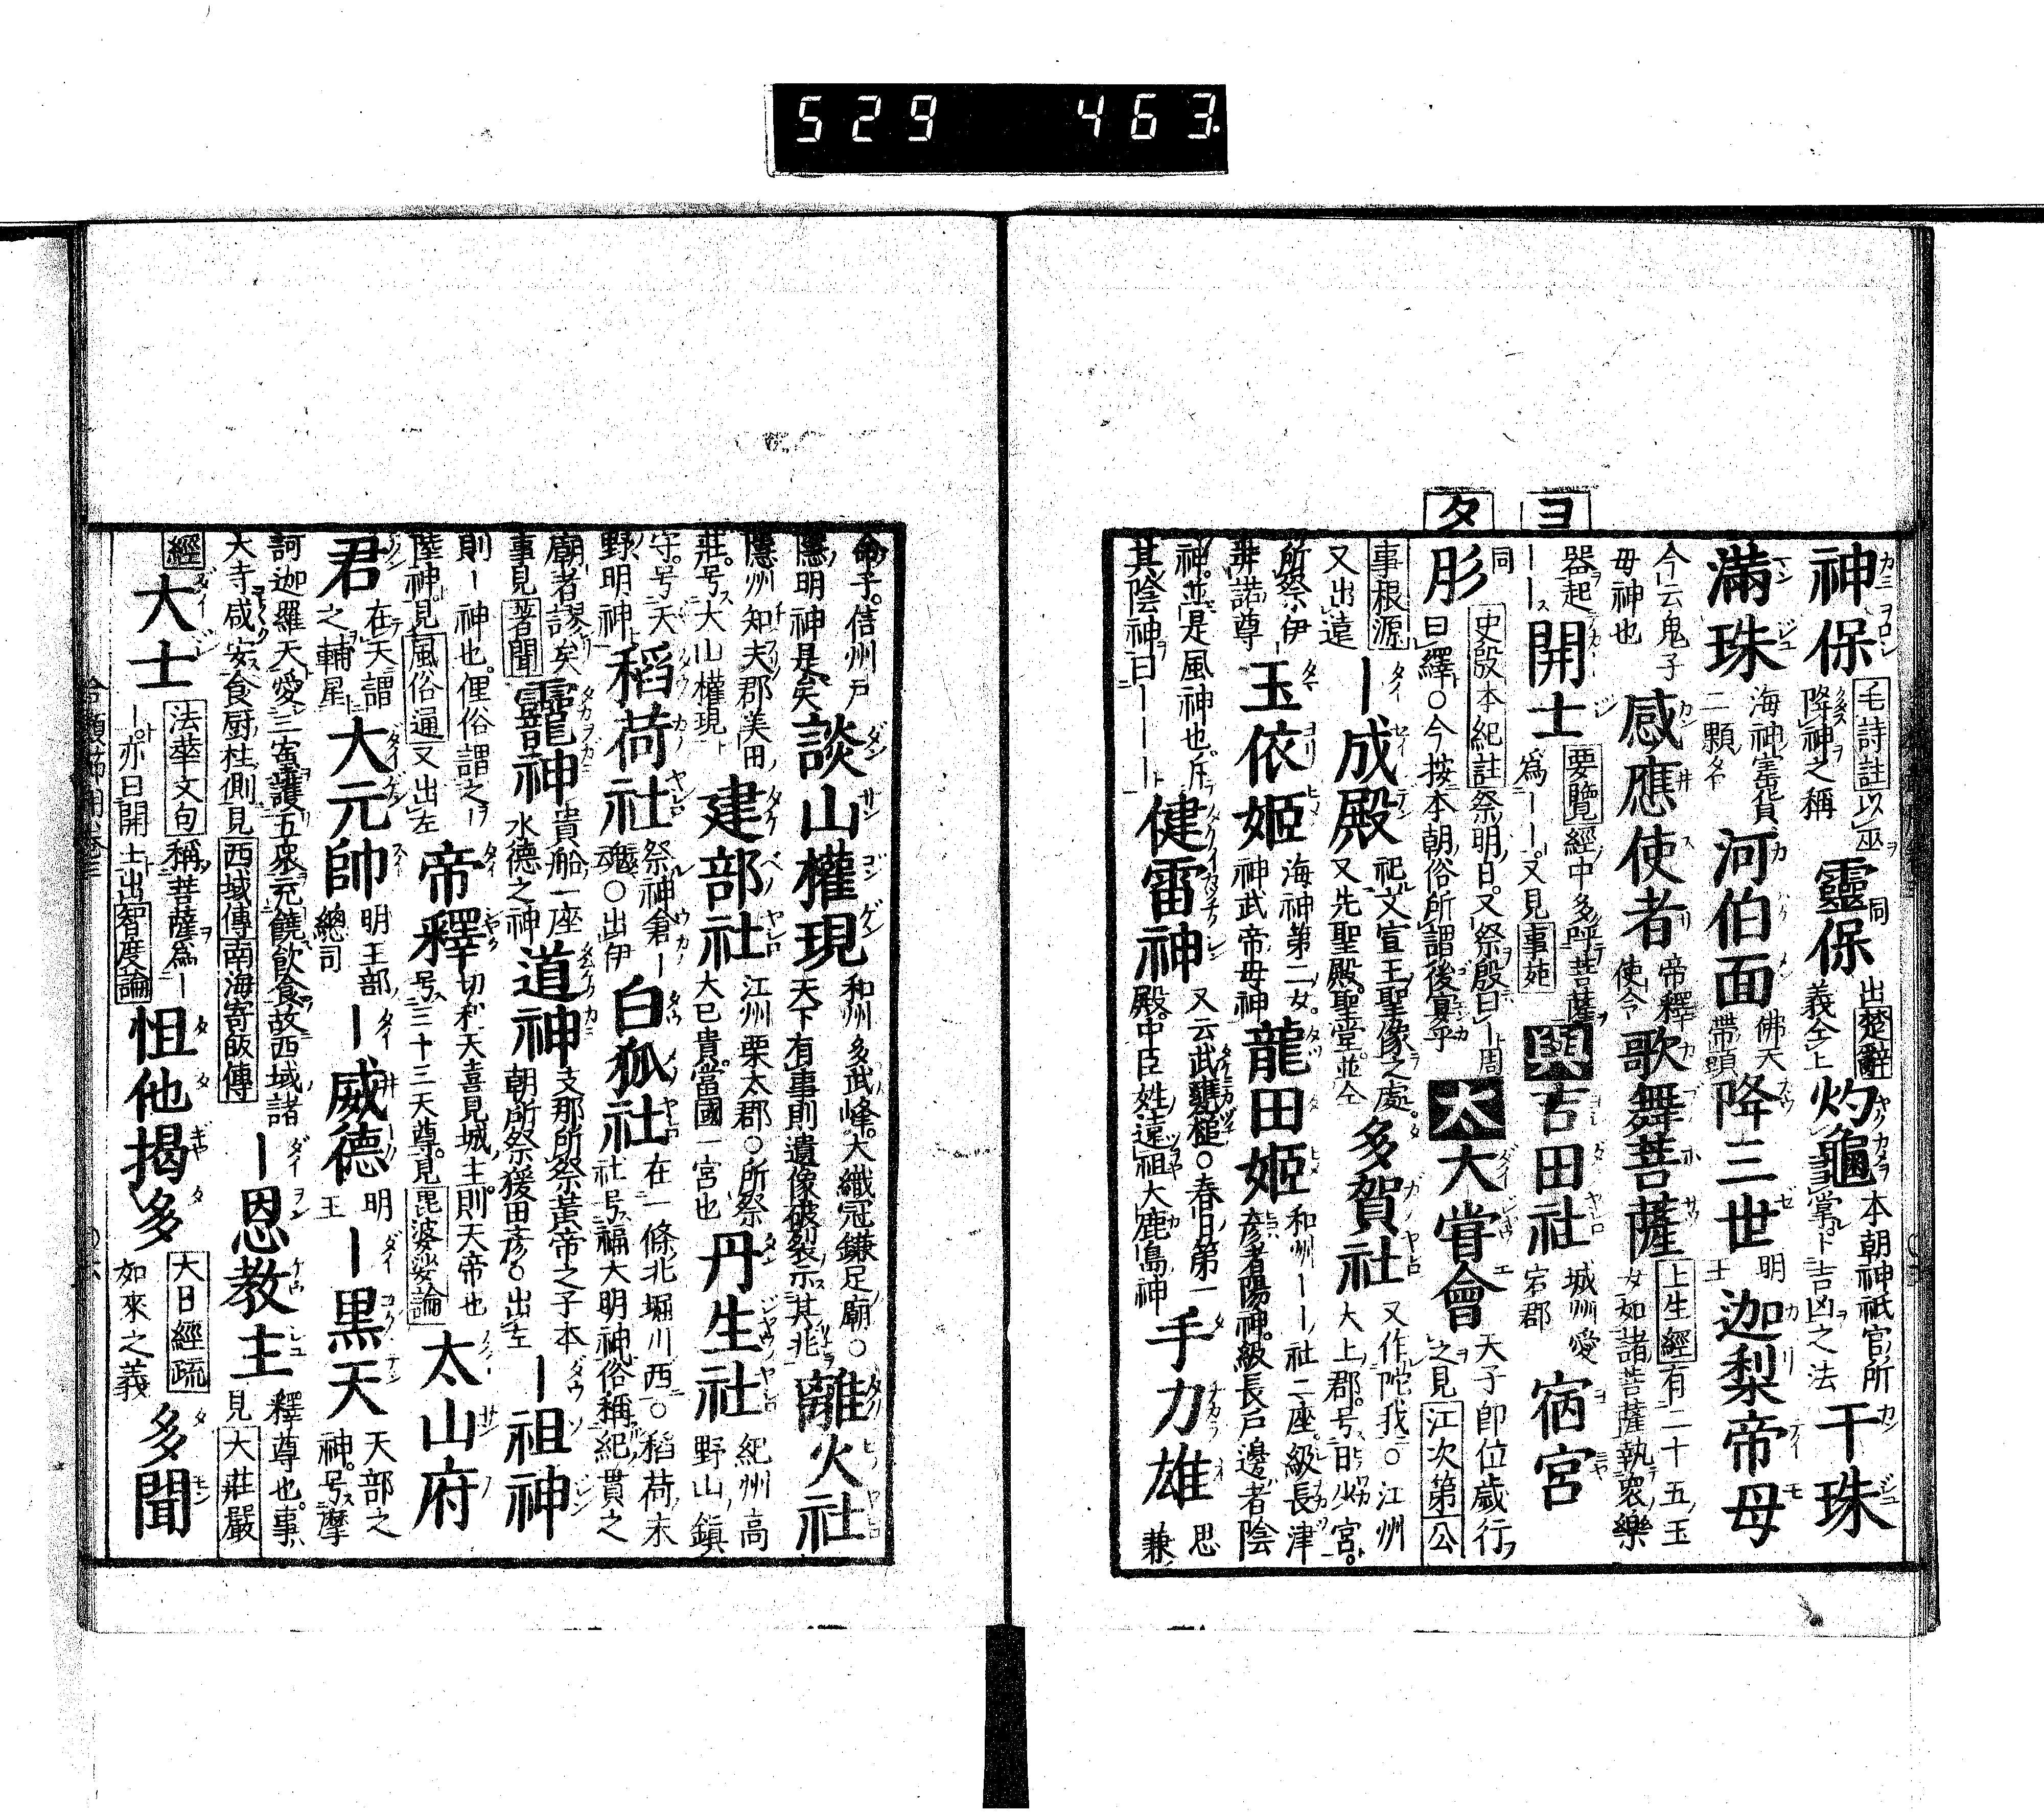 529 463
ヨ
タ
神保 毛詩註以巫降神之稱 靈保 同出楚辭義全上 灼龜 本朝神祇官所掌卜吉凶之法 干珠
滿珠 海神寳貨二顆 河伯面 佛天帶頭 降三世 明王 迦梨帝母
今云鬼子母神也 感應使者 帝釋使令 歌舞菩薩 上生經有二十五玉女如諸菩薩執衆樂
器起ーー 開士 要覽經中多呼菩薩爲ーー又見事苑 與 吉田社 城州愛宕郡 宿宮
肜 同史殷本紀註祭明日又祭殷曰ー周曰繹○今按本朝俗所謂後宴乎 太 大甞會 天子卽位歲行之見江次第公
事根源又出遠 ー成殿 祀文宣王聖像之處又先聖殿聖堂並仝 多賀社 又作陀我○江州犬上郡号日少宮
所祭伊弉諾尊 玉依姬 海神第二女神武帝母神 龍田姬 和州ーー社二座級長津彥者陽神級長戸邊者陰
神並是風神也斥其陰神曰ーーー 健雷神 又云武甕槌○春日第一殿中臣姓遠祖大鹿島神 手力雄 思兼
命子信州戸隱明神是矣 談山權現 和州多武峰大織冠鎌足廟○天下有事則遺像破裂示其兆 離火社
隱州知夫郡美田莊号大山權現 建部社 江州栗太郡○所祭大巳貴當國一宮也 丹生社 紀州高野山鎭
守号天野明神 稻荷社 祭神倉ー魂○出伊 白狐社 在一條北堀川西○稻荷末社号福大明神俗稱紀貫之
廟者謬矣事見著聞 龗神 貴船一座水德之神 道神 支那所祭黃帝之子本朝所祭猨田彥○出左 ー祖神
則ー神也俚俗謂之陸神見風俗通又出左 帝釋 切利天喜見城主則天帝也号三十三天尊見毘婆娑論 太山府
君 在天謂之輔星 大元帥 明王部總司 ー威德 明王 ー黑天 天部之神号摩
訶迦羅天愛三寳護五衆充饒飮食故西域諸大寺咸安食厨柱側見西域傳南海寄皈傳 ー恩教主 釋尊也事見大莊嚴
經 大士 法華文句稱菩薩爲ーー亦曰開士出智度論 怛他揭多 大日經疏如來之義 多聞